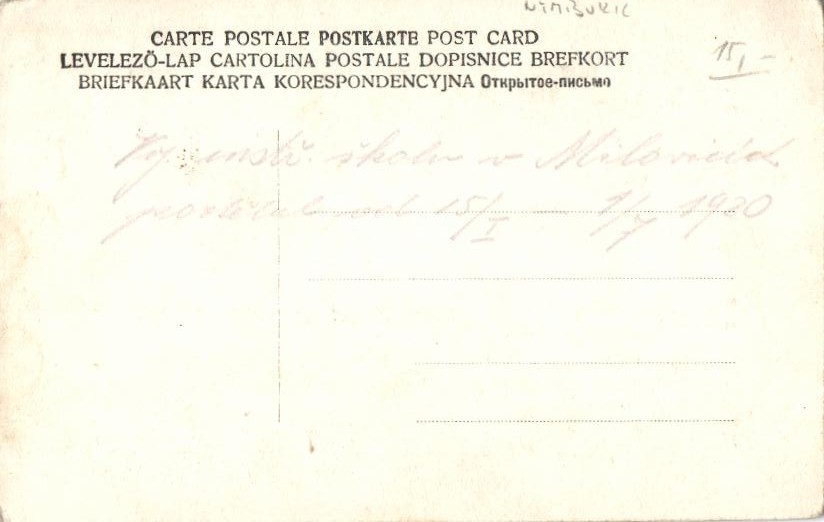 NYMBURK
15,-
CARTE POSTALE POSTKARTE POST CARD
LEVELEZŐ-LAP CARTOLINA POSTALE DOPISNICE BREFKORT
BRIEFKAART KARTA KORESPONDENCYJNA Открытое-письмо
školu v Milovicích
od 15/I – 1/7 1920